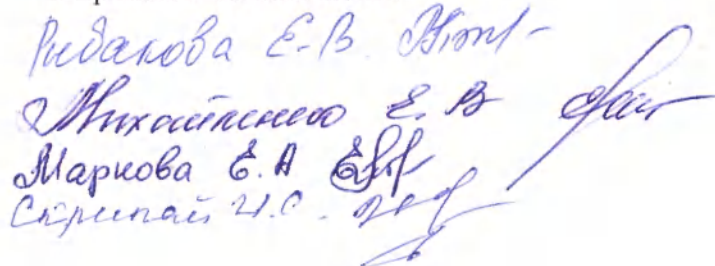 Рибакова Е.В.
Михайленко Е.В
Маркова Е.А
Скрипай И.С.